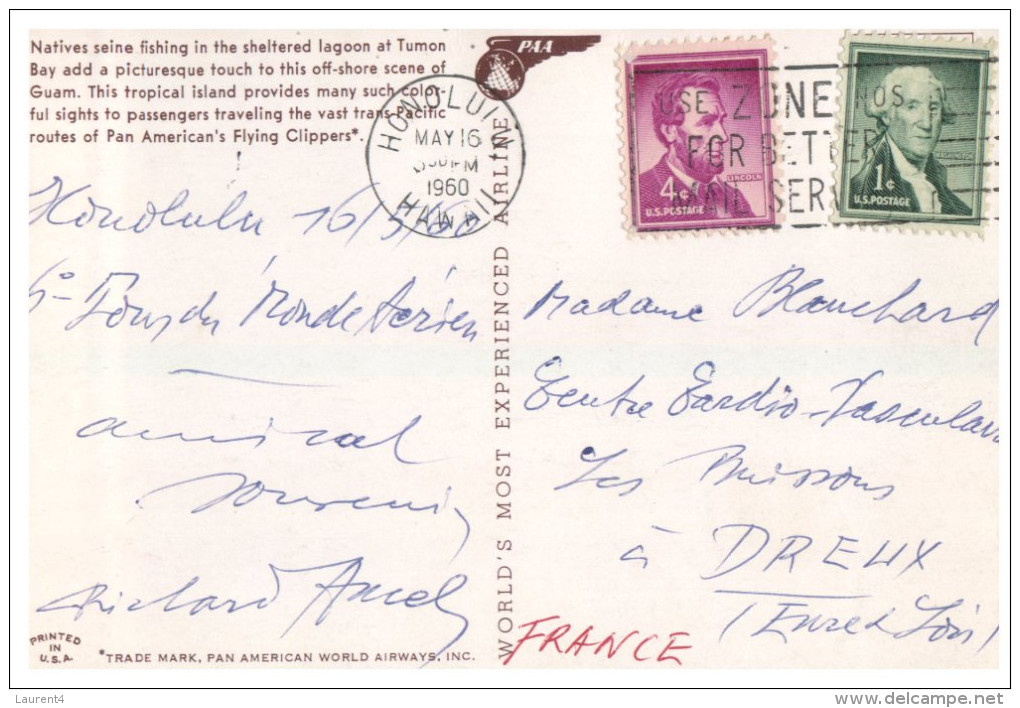 Natives seine fishing in the sheltered lagoon at Tumon
Bay add a picturesque touch to this off-shore scene of
Guam. This tropical island provides many such color-
ful sights to passengers traveling the vast trans-Pacific
routes of Pan American's Flying Clippers*.
PAA
HONOLULU
MAY 16
PM
1960
HAWAII
USE ZONE NOS.
FOR BETTER
MAIL SERV
LINCOLN
4¢
U.S. POSTAGE
WASHINGTON
1¢
U.S. POSTAGE
Honolulu 16/5/60
6° Tour du Monde Aérien
amical
souvenir
Richard
WORLD'S MOST EXPERIENCED AIRLINE
Madame Blanchard
Centre Cardio-Vasculaire
Les Buissons
à DREUX
(Eure & Loir)
FRANCE
PRINTED
IN
U.S.A.
*TRADE MARK, PAN AMERICAN WORLD AIRWAYS, INC.
Laurent4
www.delcampe.net